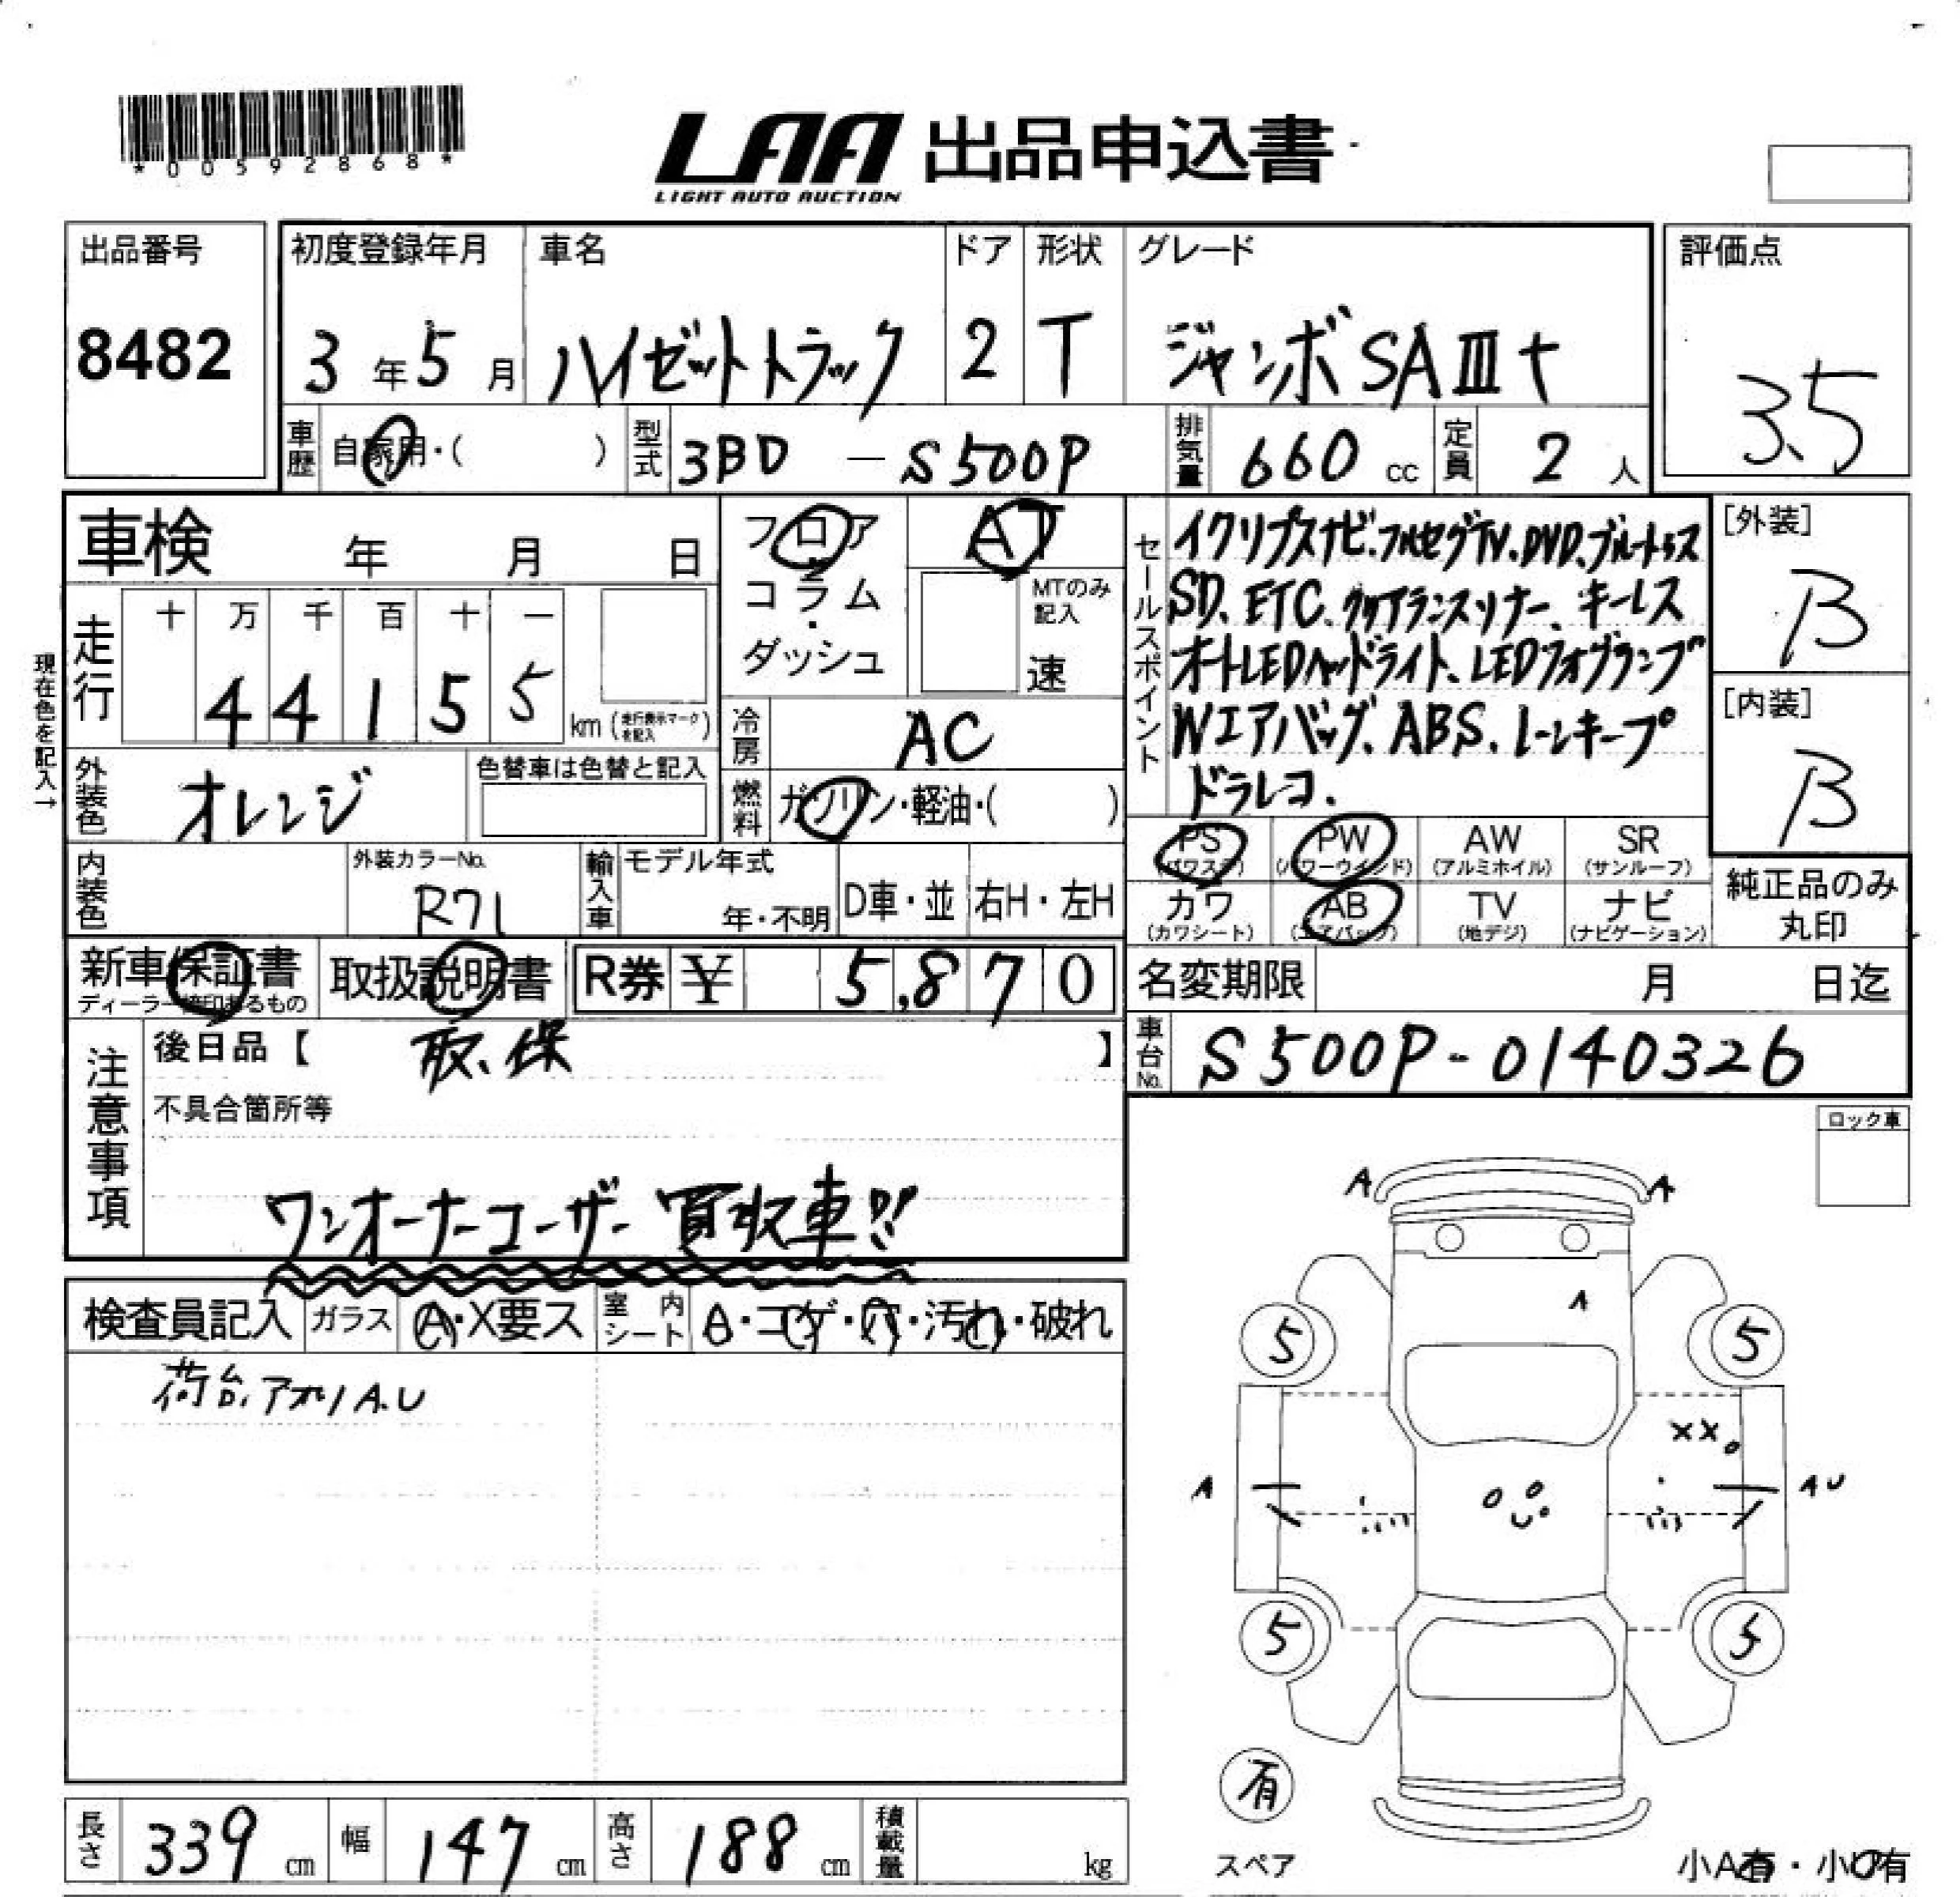 *00592868*
LAA 出品申込書
LIGHT AUTO AUCTION
出品番号
8482
初度登録年月
3年5月
車名
ハイゼットトラック
ドア
2
形状
T
グレード
ジャンボSAⅢt
評価点
3.5
車歴
自家用・( )
型式
3BD - S500P
排気量
660 cc
定員
2人
車検 年 月 日
フロア
コラム
・
ダッシュ
AT
MTのみ記入
速
セールスポイント
イクリプスナビ.フルセグTV.DVD.ブルートゥス
SD、ETC.クリアランスソナー、キーレス
オートLEDヘッドライト、LEDフォグランプ
Wエアバッグ、ABS、レーンキープ
ドラレコ.
[外装]
B
[内装]
B
現在色を記入→
走行
十 万 千 百 十 一
4 4 1 5 5
km (走行表示マークを記入)
冷房
AC
外装色
オレンジ
色替車は色替と記入
燃料
ガソリン・軽油・( )
PS
(パワステ)
PW
(パワーウインド)
AW
(アルミホイル)
SR
(サンルーフ)
カワ
(カワシート)
AB
(エアバック)
TV
(地デジ)
ナビ
(ナビゲーション)
純正品のみ
丸印
内装色
外装カラーNo.
R71
輸入車
モデル年式
年・不明
D車・並
右H・左H
新車保証書
ディーラー捺印あるもの
取扱説明書
R券 ¥ 5,870
名変期限 月 日迄
車台No.
S500P-0140326
注意事項
後日品【 取、保 】
不具合箇所等
ワンオーナーユーザー買取車!!
ロック車
検査員記入
ガラス
A・X要ス
室内シート
A・コゲ・穴・汚れ・破れ
荷台.アオリA.U
A A
A
5 5
XX
A AU
5 5
有
スペア
小A有・小U有
長さ
339 cm
幅
147 cm
高さ
188 cm
積載量
kg